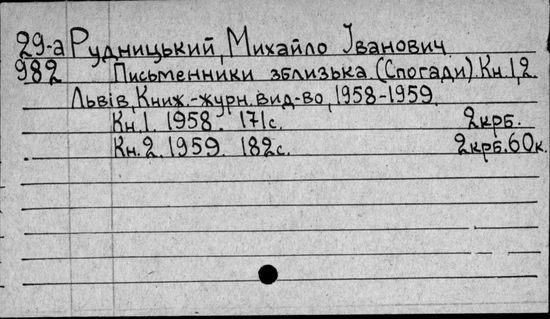 29-а Рудницький, Михайло Іванович
982 Письменники зблизька. (Спогади). Кн. 1, 2.
Львів, Книж.-журн. вид-во, 1958-1959.
Кн. 1. 1958. 171с. 2крб.
Кн. 2. 1959. 182с. 2крб. 60к.